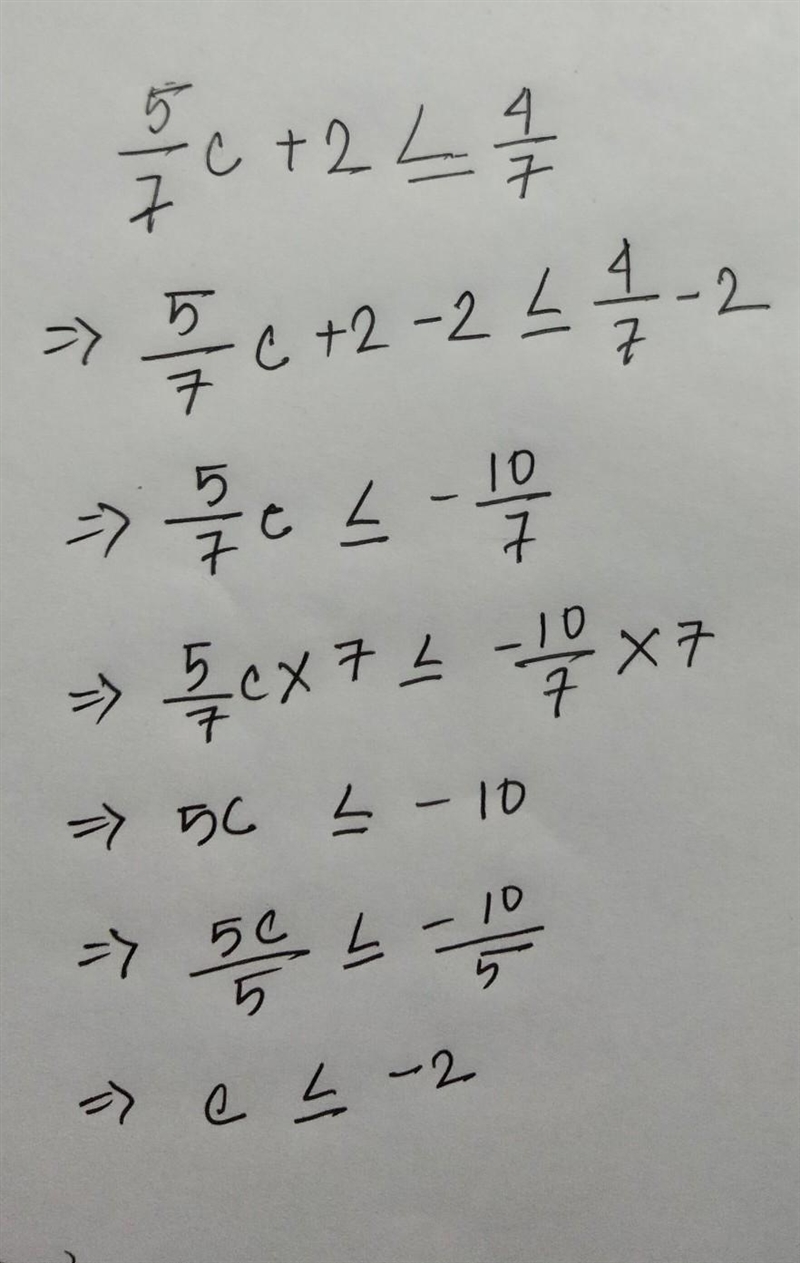 5/7 c + 2 ≤ 4/7
⇒ 5/7 c + 2 - 2 ≤ 4/7 - 2
⇒ 5/7 c ≤ - 10/7
⇒ 5/7 c × 7 ≤ - 10/7 × 7
⇒ 5c ≤ - 10
⇒ 5c/5 ≤ - 10/5
⇒ c ≤ - 2